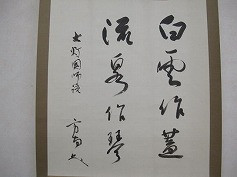 白雲作蓋
流泉作琴
大灯国師語
方南书